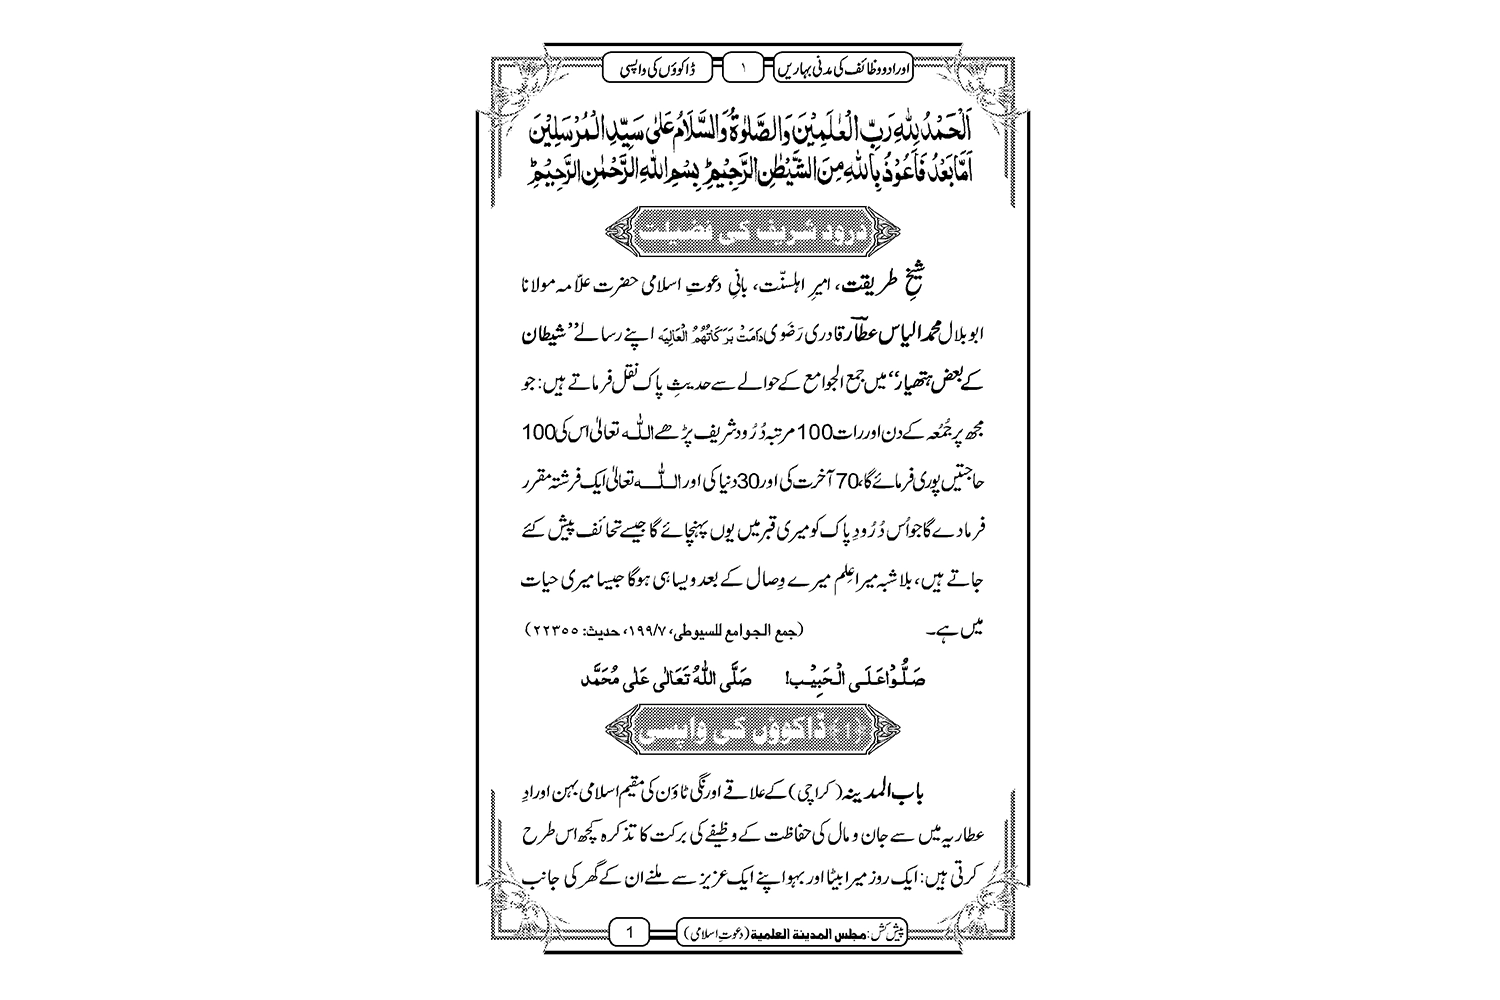 اورادووظائف کی مدنی بہاریں ۱ ڈاکوؤں کی واپسی
اَلْحَمْدُ لِلّٰهِ رَبِّ الْعٰلَمِيْنَ وَالصَّلٰوةُ وَالسَّلَامُ عَلٰى سَيِّدِ الْمُرْسَلِيْنَ
اَمَّا بَعْدُ فَاَعُوْذُ بِاللّٰهِ مِنَ الشَّيْطٰنِ الرَّجِيْمِ ؕ بِسْمِ اللّٰهِ الرَّحْمٰنِ الرَّحِيْمِ ؕ
درود شریف کی فضیلت
شیخِ طریقت، امیرِ اہلسنّت، بانیِ دعوتِ اسلامی حضرت علاّمہ مولانا
ابوبلال محمد الیاس عطّار قادری رَضَوی دَامَتْ بَرَکَاتُہُمُ الْعَالِیَہ اپنے رسالے ’’شیطان
کے بعض ہتھیار‘‘ میں جمع الجوامع کے حوالے سے حدیثِ پاک نقل فرماتے ہیں: جو
مجھ پر جُمُعہ کے دن اور رات 100 مرتبہ دُرُود شریف پڑھے اللّٰہ تعالیٰ اس کی 100
حاجتیں پوری فرمائے گا، 70 آخرت کی اور 30 دنیا کی اور اللّٰہ تعالیٰ ایک فرشتہ مقرر
فرمادے گا جو اُس دُرُودِ پاک کو میری قبر میں یوں پہنچائے گا جیسے تحائف پیش کئے
جاتے ہیں، بلاشبہ میرا عِلم میرے وِصال کے بعد ویسا ہی ہوگا جیسا میری حیات
میں ہے۔ (جمع الجوامع للسیوطی، ۱۹۹/۷، حدیث: ۲۲۳۵۵)
صَلُّوْا عَلَی الْحَبِیْب! صَلَّی اللّٰهُ تَعَالٰی عَلٰی مُحَمَّد
﴿۱﴾ ڈاکوؤں کی واپسی
باب المدینہ (کراچی) کے علاقے اورنگی ٹاؤن کی مقیم اسلامی بہن اورادِ
عطاریہ میں سے جان و مال کی حفاظت کے وظیفے کی برکت کا تذکرہ کچھ اس طرح
کرتی ہیں: ایک روز میرا بیٹا اور بہو اپنے ایک عزیز سے ملنے ان کے گھر کی جانب
پیش کش: مجلس المدینۃ العلمیۃ (دعوتِ اسلامی) 1